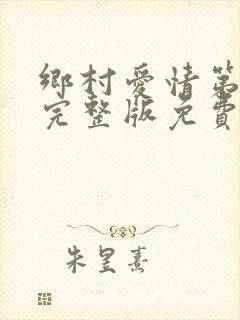 鄉村愛情第
完整版免費
朱昱熹